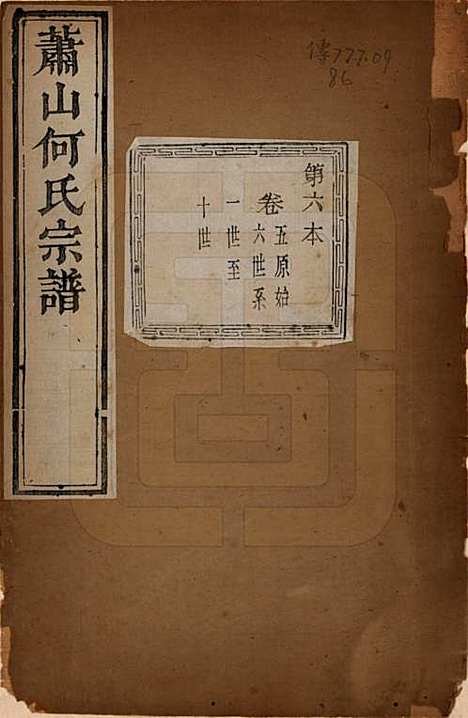 蕭山何氏宗譜
傳77.7.09
86
第六本
卷五原始
六世系
一世至
十世